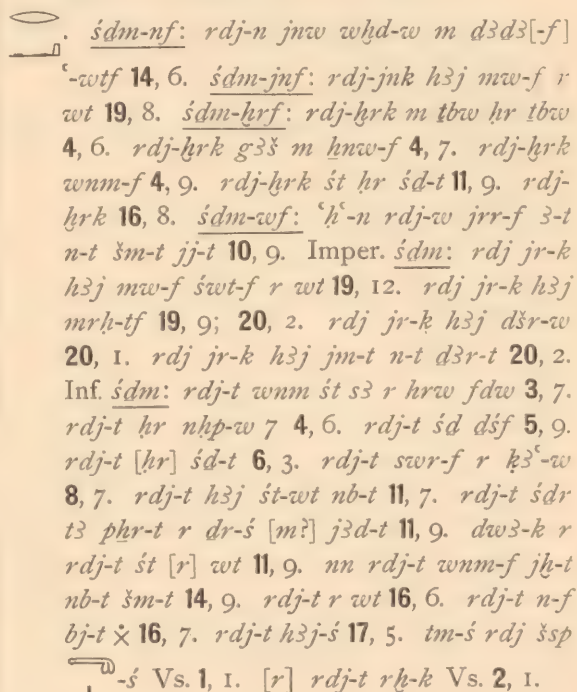 . śdm-nf: rdj-n jnw wḫd-w m dꜣdꜣ[-f]
ꜥ-wtf 14, 6. śdm-jnf: rdj-jnk hꜣj mw-f r
wt 19, 8. śdm-ḫrf: rdj-ḫrk m ṯbw ḥr ṯbw
4, 6. rdj-ḫrk gꜣš m ẖnw-f 4, 7. rdj-ḫrk
wnm-f 4, 9. rdj-ḫrk śt ḥr śḏ-t 11, 9. rdj-
ḫrk 16, 8. śdm-wf: ꜥḥꜥ-n rdj-w jrr-f ꜣ-t
n-t šm-t jj-t 10, 9. Imper. śdm: rdj jr-k
hꜣj mw-f śwt-f r wt 19, 12. rdj jr-k hꜣj
mrḥ-tf 19, 9; 20, 2. rdj jr-k hꜣj dšr-w
20, 1. rdj jr-k hꜣj jm-t n-t dꜣr-t 20, 2.
Inf. śdm: rdj-t wnm śt sꜣ r hrw fdw 3, 7.
rdj-t ḥr nhp-w 7 4, 6. rdj-t śd dśf 5, 9.
rdj-t [ḥr] śd-t 6, 3. rdj-t swr-f r ḳꜣꜥ-w
8, 7. rdj-t hꜣj śt-wt nb-t 11, 7. rdj-t śdr
tꜣ pẖr-t r dr-ś [m?] jꜣd-t 11, 9. dwꜣ-k r
rdj-t śt [r] wt 11, 9. nn rdj-t wnm-f jḫ-t
nb-t šm-t 14, 9. rdj-t r wt 16, 6. rdj-t n-f
bj-t ẋ 16, 7. rdj-t hꜣj-ś 17, 5. tm-ś rdj šsp
-ś Vs. 1, 1. [r] rdj-t rḫ-k Vs. 2, 1.